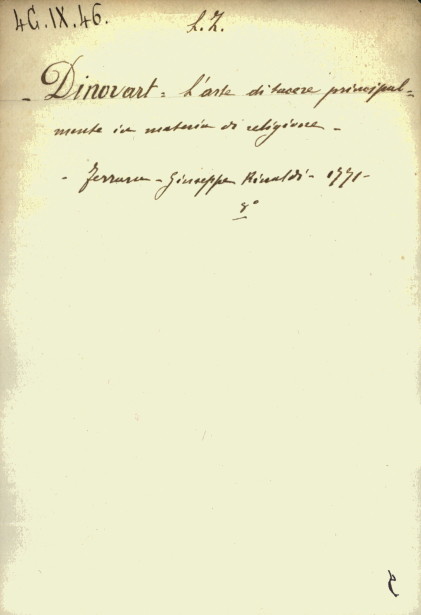 4G.IX.46.
L.Z.
- Dinovart = L'arte di tacere principal=
mente in materia di religione -
- Ferrara - Giuseppe Rinaldi - 1771 -
8°